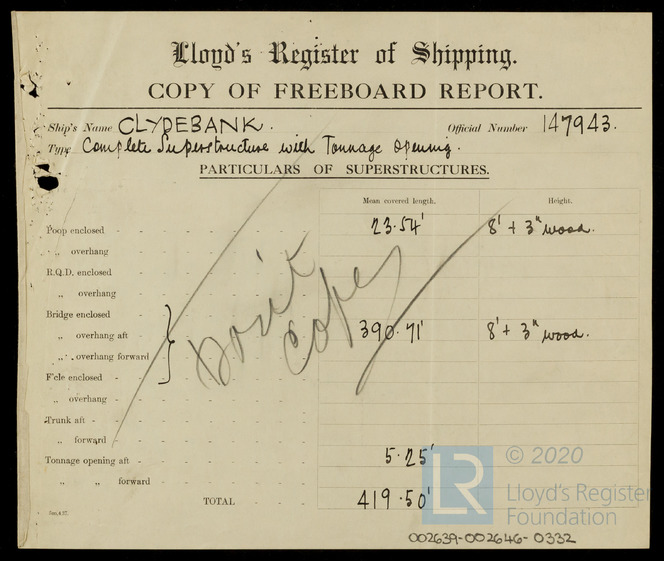 Lloyd's Register of Shipping.
COPY OF FREEBOARD REPORT.
Ship's Name CLYDEBANK. Official Number 147943.
Type Complete Superstructure with Tonnage Opening.
PARTICULARS OF SUPERSTRUCTURES.
Mean covered length. Height.
Poop enclosed 23.54' 8' + 3" wood.
„ overhang
R.Q.D. enclosed
„ overhang
Bridge enclosed
„ overhang aft 390.71' 8' + 3" wood.
„ overhang forward
F'cle enclosed
„ overhang
Trunk aft
„ forward
Tonnage opening aft 5.25'
„ „ forward
TOTAL 419.50'
Don't
Copy
LR
© 2020
Lloyd's Register
Foundation
002639-002646-0332